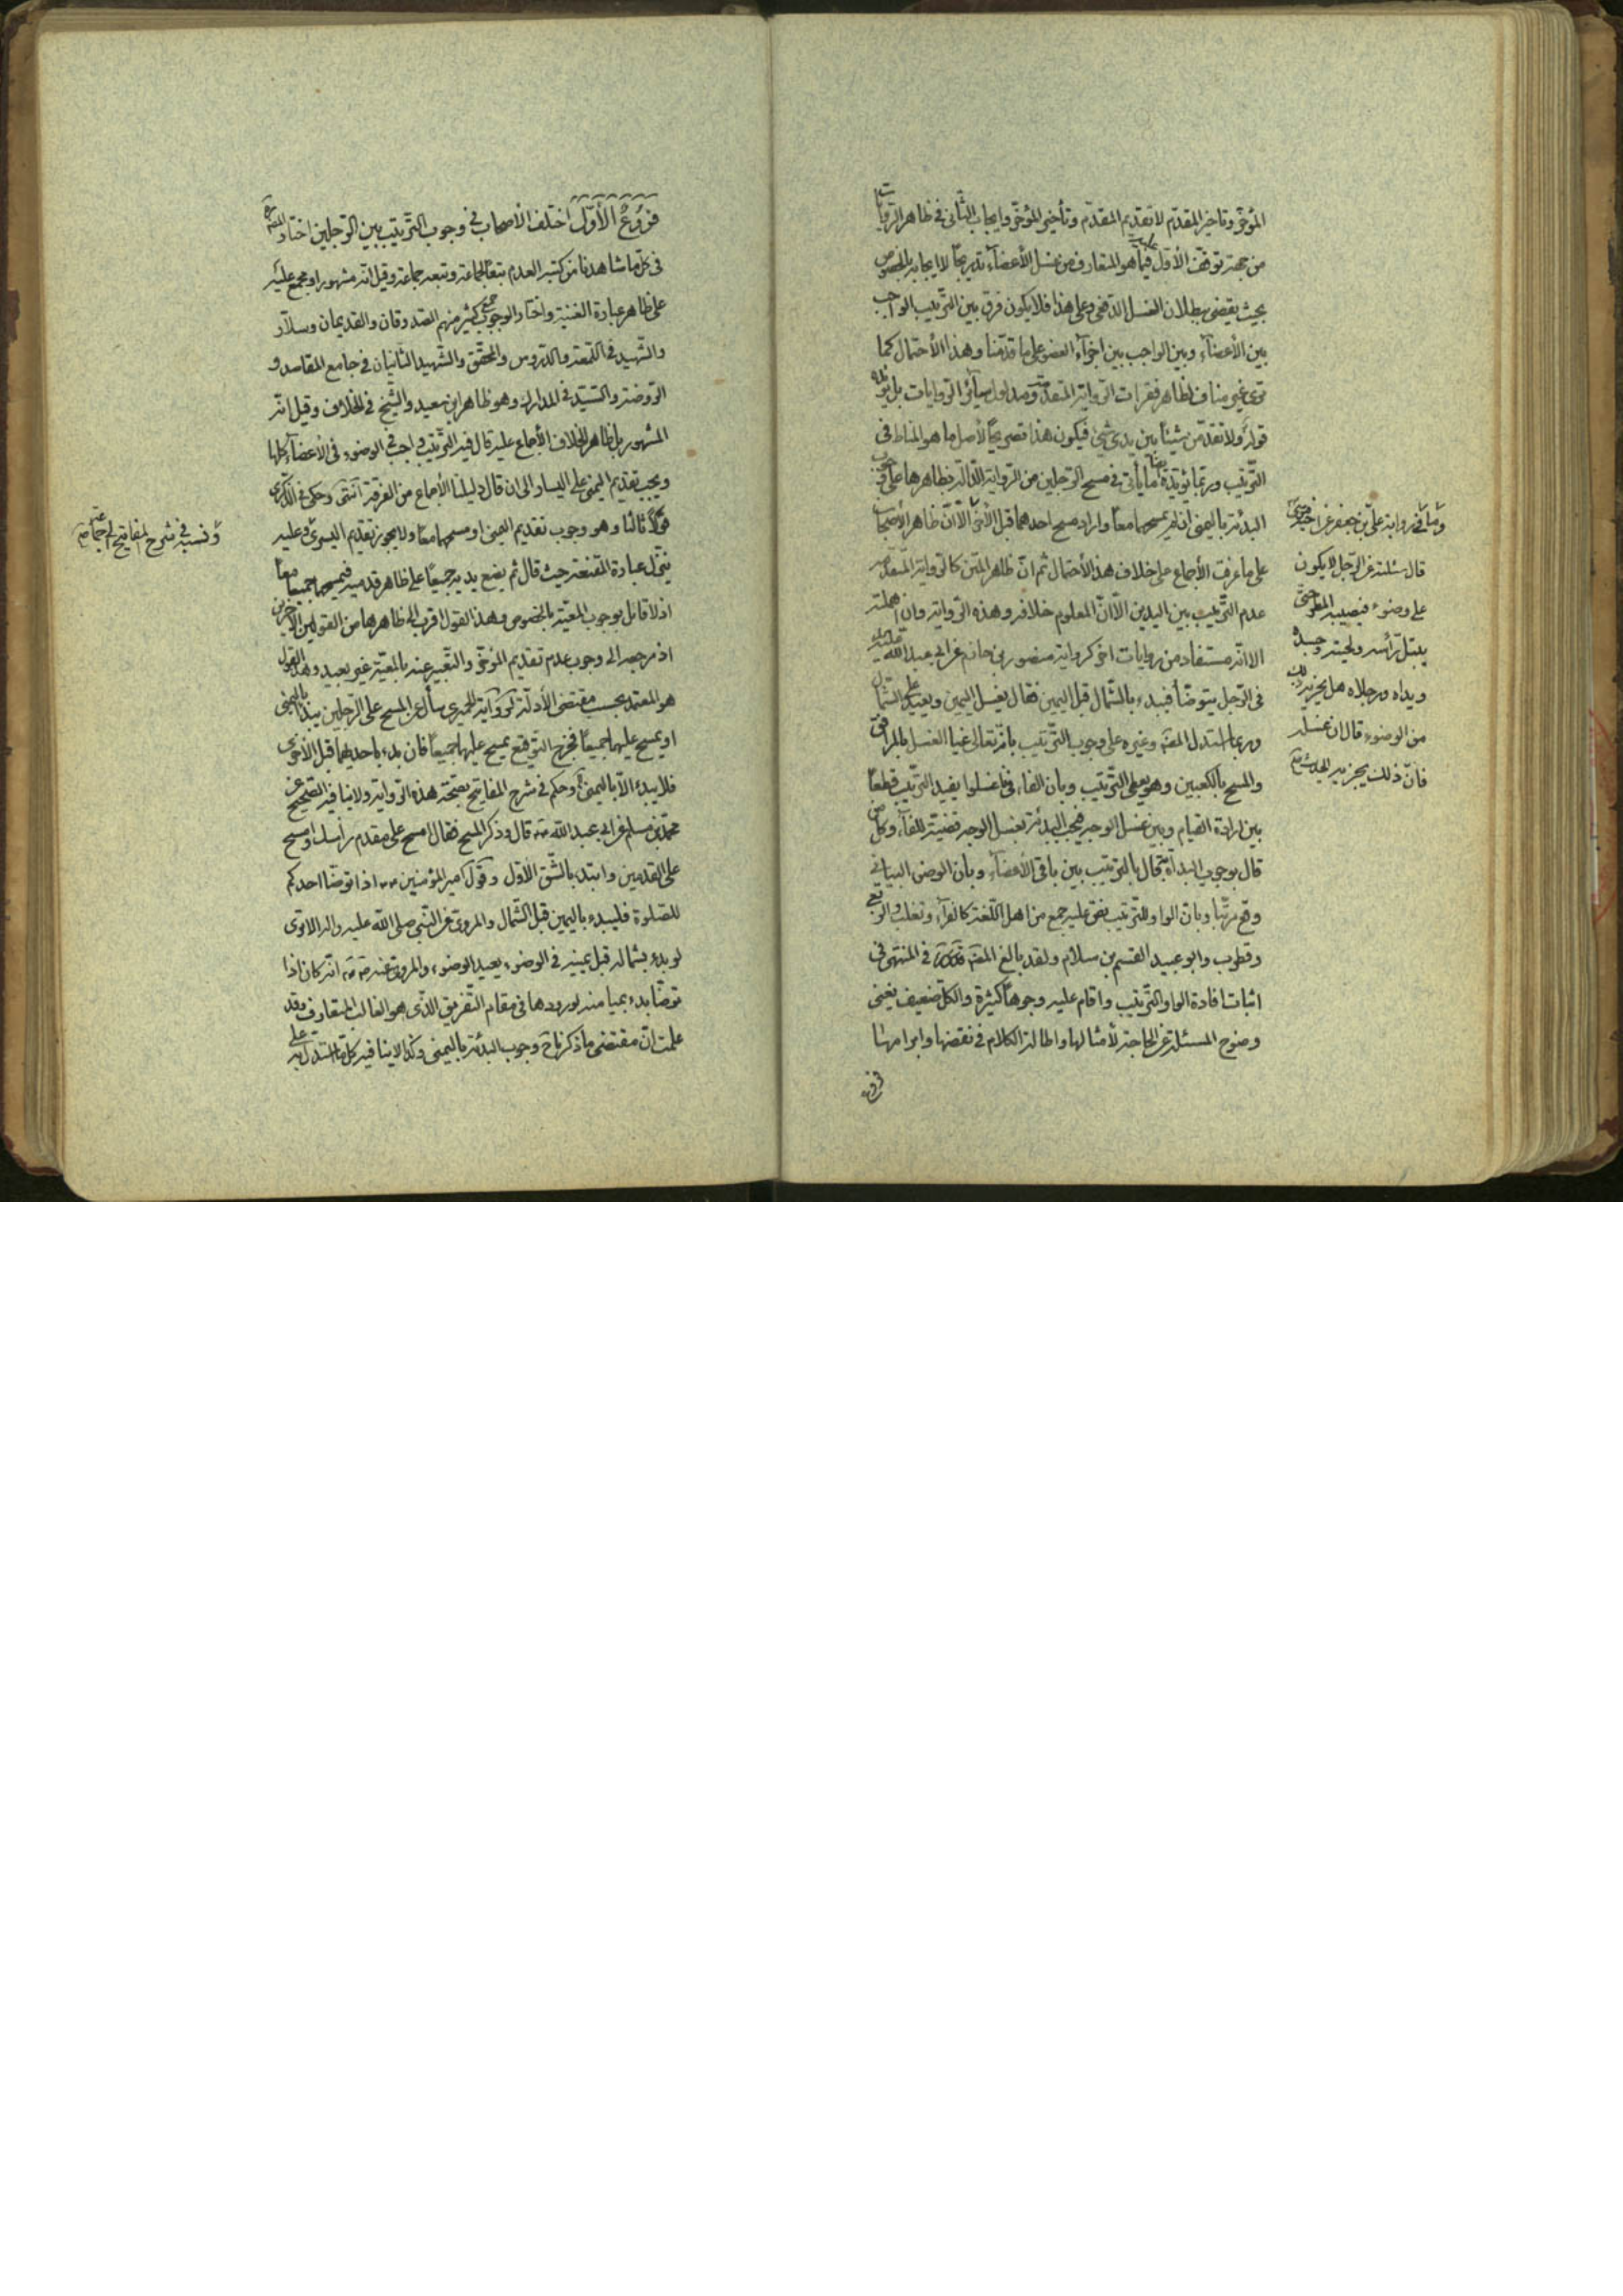 المؤخّر وتاخير المقدّم لا تقديم المقدّم وتأخير المؤخّر وايجاب الثّانى فى ظاهر الرّوايات
من جهة توقّف الأوّل عليه فيما هو المتعارف من غسل الأعضآء تدريجًا لا ايجابه بالخصوص
بحيث يقضى ببطلان الغسل الدّفعى وعلى هذا فلا يكون فرق بين التّرتيب الواجب
بين الأعضآء وبين الواجب بين اجزآء العضو على ما قدّمنا وهذا الأحتمال كما
ترى غير مناف لظاهر فقرات الرّواية المتقدّمة ومدلول سآئر الرّوايات بل
قوله ولا تقدّمنّ شيئا بين يدى شئ فيكون هذا تصريحًا لأصل ما هو المناط فى
التّرتيب وربّما يؤيّده ما يأتى فى مسح الرّجلين من الرّواية الدّالّة بظاهرها على وجوب
البدئة باليمنى ان لم يمسحهما معًا واراد مسح احدهما قبل الأخرى الاّ انّ ظاهر الأصحاب
على ما عرفت الأجماع على خلاف هذا الأحتمال ثم انّ ظاهر المتن كالرّواية المتقدّمة
عدم التّرتيب بين اليدين الاّ انّ المعلوم خلافه وهذه الرّواية وان اهملته
الا انّه مستفاد من روايات اخر كرواية منصور بن حازم عن ابى عبد الله عليه السلام
فى الرّجل يتوضّأ فيبدء بالشّمال قبل اليمين فقال يغسل اليمين ويعيد على الشّمال
وربما استدل المصنّف وغيره على وجوب التّرتيب بانّه تعالى غيا الغسل بالمرافق
والمسح بالكعبين وهو يعطى التّرتيب وبان الفاء فى فاغسلوا يفيد التّرتيب قطعًا
بين ارادة القيام وبين غسل الوجه فيجب البدئة بغسل الوجه قضيّة للفآء وكل من
قال بوجوب البدأة به قال بالترتيب بين باقى الأعضآء وبان الوضوء البيانى
وقع مرتّبا وبان الواو للتّرتيب نصّ عليه جمع من اهل اللّغة كالفرآء وثعلب والرّبعى
وقطرب وابو عبيد القسم بن سلام ولقد بالغ المصنّف فى المنتهى فى
اثبات افادة الواو التّرتيب واقام عليه وجوهًا كثيرة والكلّ ضعيف يغنى
وضوح المسئلة عن الحاجة لأمثالها واطالة الكلام فى نقضها وابرامها
فروع
وما فى رواية علىّ بن جعفر عن اخيه موسى
قال سئلته عن الرّجل لا يكون
على وضوء فيصيبه المطر حتّى
يبتلّ رأسه ولحيته وجسده
ويداه ورجلاه هل يجزيه ذلك
من الوضوء قال ان غسله
فانّ ذلك يجزيه
فروع الأوّل اختلف الأصحاب فى وجوب التّرتيب بين الرّجلين اختار المصنّف
فى كلّ ما شاهدنا من كتبه العدم تبعًا لجماعة وتبعه جماعة وقيل انّه مشهور او مجمع عليه
على ظاهر عبارة الغنية واختار الوجوب جمع كثير منهم الصّدوقان والقديمان وسلاّر
والشّهيد فى اللّمعة والدّروس والمحقّق والشّهيد الثّانيان فى جامع المقاصد و
الرّوضة والسّيّد فى المدارك وهو ظاهر ابن سعيد والشّيخ فى الخلاف وقيل انّه
المشهور بل ظاهر الخلاف الأجماع عليه قال فيه التّرتيب واجب فى الوضوء فى الأعضآء كلها
ويجب تقديم اليمنى على اليسار الى ان قال دليلنا الأجماع من الفرقة انتهى وحكى فى الذّكرى
قولاً ثالثا وهو وجوب تقديم اليمنى او مسحهما معًا ولا يجوز تقديم اليسرى وعليه
ينزّل عبارة المقنعة حيث قال ثم يضع يديه جميعًا على ظاهر قدميه فيمسحهما جميعًا معًا
اذ لا قائل بوجوب المعيّة بالخصوص وهذا القول اقرب الى ظاهرها من القولين الآخرين
اذ مرجعه الى وجوب عدم تقديم المؤخّر والتّعبير عنه بالمعيّة غير بعيد وهذا القول
هو المعتمد بحسب مقتضى الأدلّة كرواية الحميرى سأل عن المسح على الرّجلين يبدأ باليمنى
او يمسح عليهما جميعًا فخرج التّوقيع يمسح عليهما جميعًا فان بدء باحديهما قبل الأخرى
فلا يبدء الاّ باليمنى وحكم فى شرح المفاتيح بصحّة هذه الرّواية ولا ينافيه الصّحيح عن
محمّد بن مسلم عن ابى عبد الله قال وذكر المسح فقال امسح على مقدم رأسك وامسح
على القدمين وابتدء بالشّق الأوّل وقول امير المؤمنين اذا توضّا احدكم
للصّلوة فليبدء باليمين قبل الشّمال والمروى عن النّبى صلى الله عليه واله الاتوى
لو بدء بشماله قبل يمينه فى الوضوء يعيد الوضوء والمروى عنه انّه كان اذا
توضّا بدء بميامنه لورودها فى مقام التّفريق الّذى هو الغالب المتعارف وقد
علمت انّ مقتضى ما ذكرناه وجوب البدئة باليمنى وكذا لا ينافيه كل ما استدل به على
ونسبه فى شرح المفاتيح الى جماعة